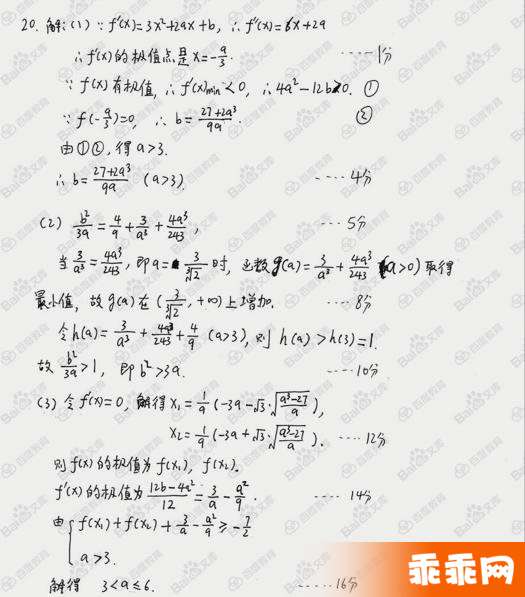 20. 解:(1) ∵ f'(x)=3x²+2ax+b, ∴ f'(x)=6x+2a
∴ f'(x)的极值点是 x=-a/3. ……1分
∵ f(x)有极值, ∴ f'(x)min<0, ∴ 4a²-12b>0. ①
∵ f(-a/3)=0, ∴ b=(27+2a³)/9a. ②
由①②, 得 a>3.
∴ b=(27+2a³)/9a (a>3). ……4分
(2) b²/3a=4/9+3/a³+4a³/243, ……5分
当 3/a³=4a³/243, 即 a=3/³√2 时, 函数 g(a)=3/a³+4a³/243 (a>0) 取得
最小值, 故 g(a)在(3/³√2, +∞)上增加. ……8分
令 h(a)=3/a³+4a³/243+4/9 (a>3), 则 h(a)>h(3)=1.
故 b²/3a>1, 即 b²>3a. ……10分
(3) 令 f'(x)=0, 解得 x₁=1/9(-3a-√3·√((a³-27)/a)),
x₂=1/9(-3a+√3·√((a³-27)/a)). ……12分
则 f(x)的极值为 f(x₁), f(x₂).
f'(x)的极值为 (12b-4a²)/12=3/a-a²/9. ……14分
由 { f(x₁)+f(x₂)+3/a-a²/9≥-7/2
a>3.
解得 3<a≤6. ……16分
Bai百度文库
百度教育
乖乖网